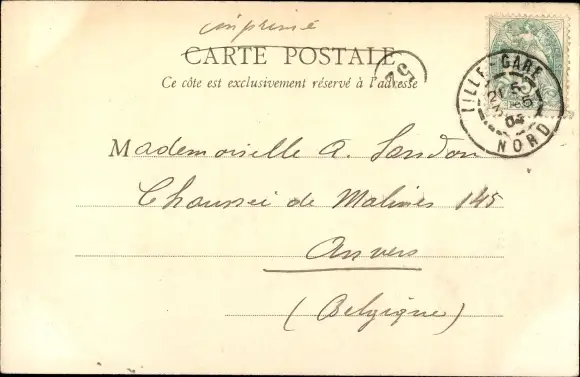 imprimé
CARTE POSTALE
Ce côte est exclusivement réservé à l'adresse
LILLE-GARE
NORD
Mademoiselle A. Landon
Chaussée de Malines 145
Anvers
(Belgique)